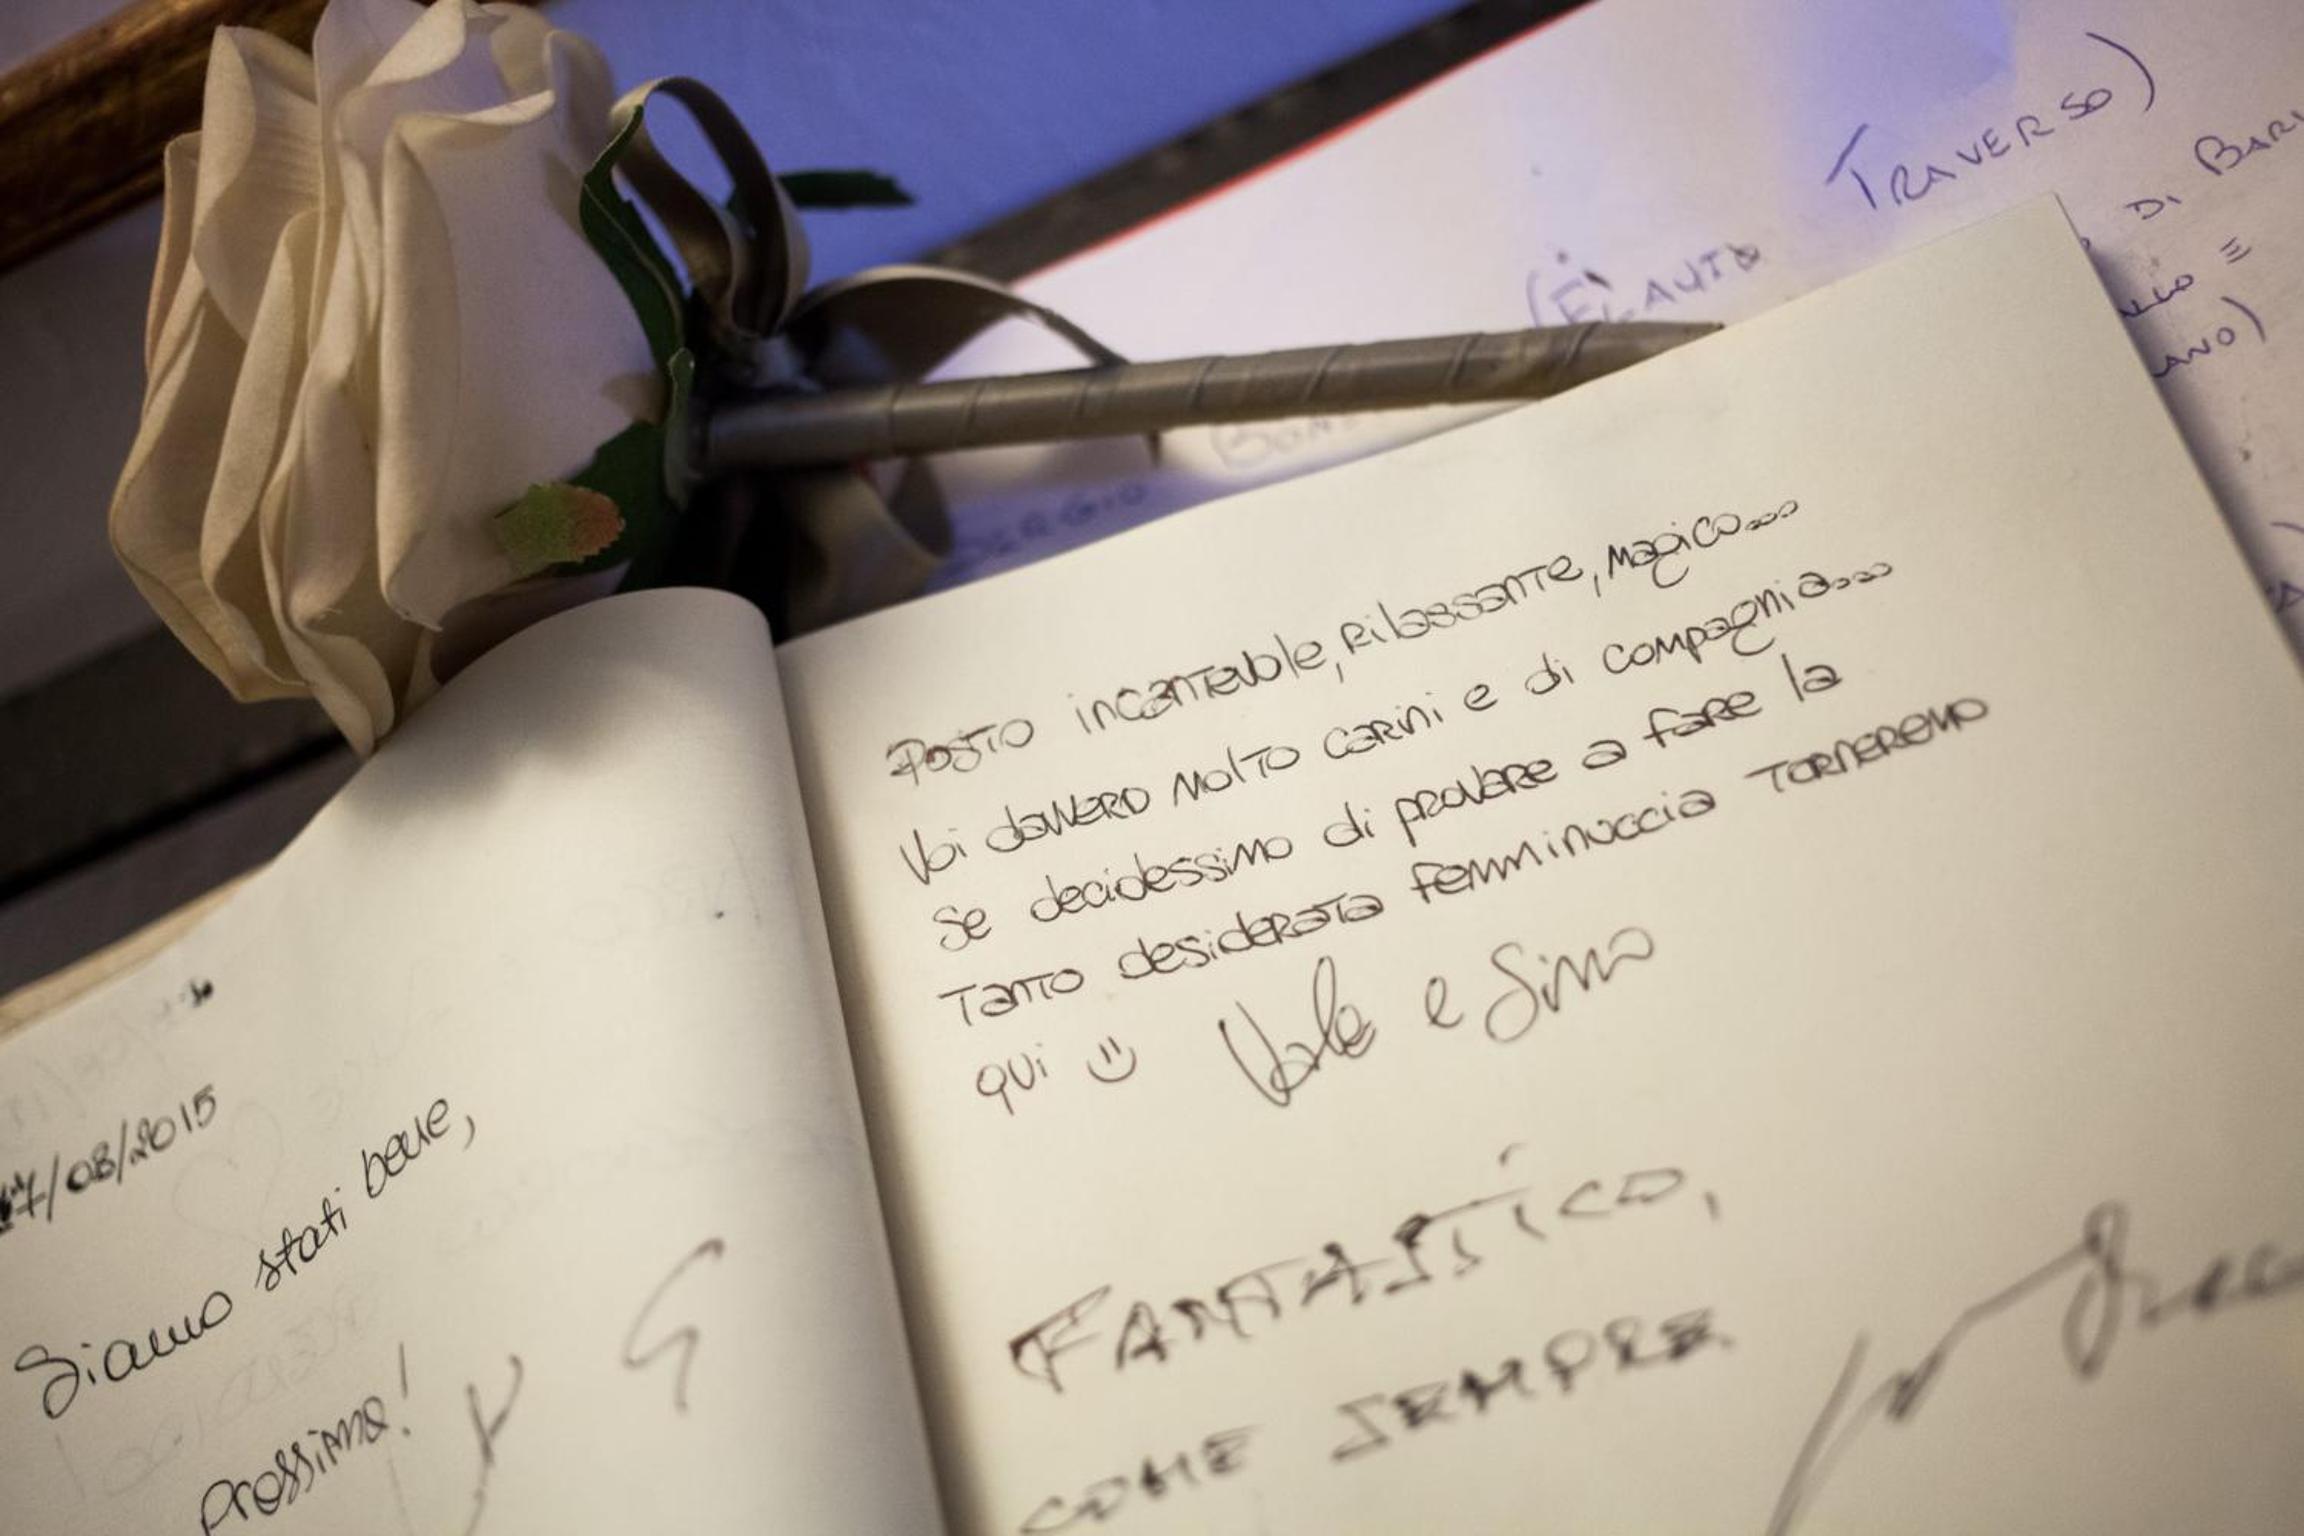 TRAVERSO)
(FLAUTO
DI BARI
E
ANO)
SERGIO
/08/2015
Siamo stati bene,
prossima!
Posto incantevole, rilassante, magico...
Voi davvero molto carini e di compagnia...
Se decidessimo di provare a fare la
tanto desiderata femminuccia torneremo
qui :) Vale e Simo
FANTASTICO,
COME SEMPRE